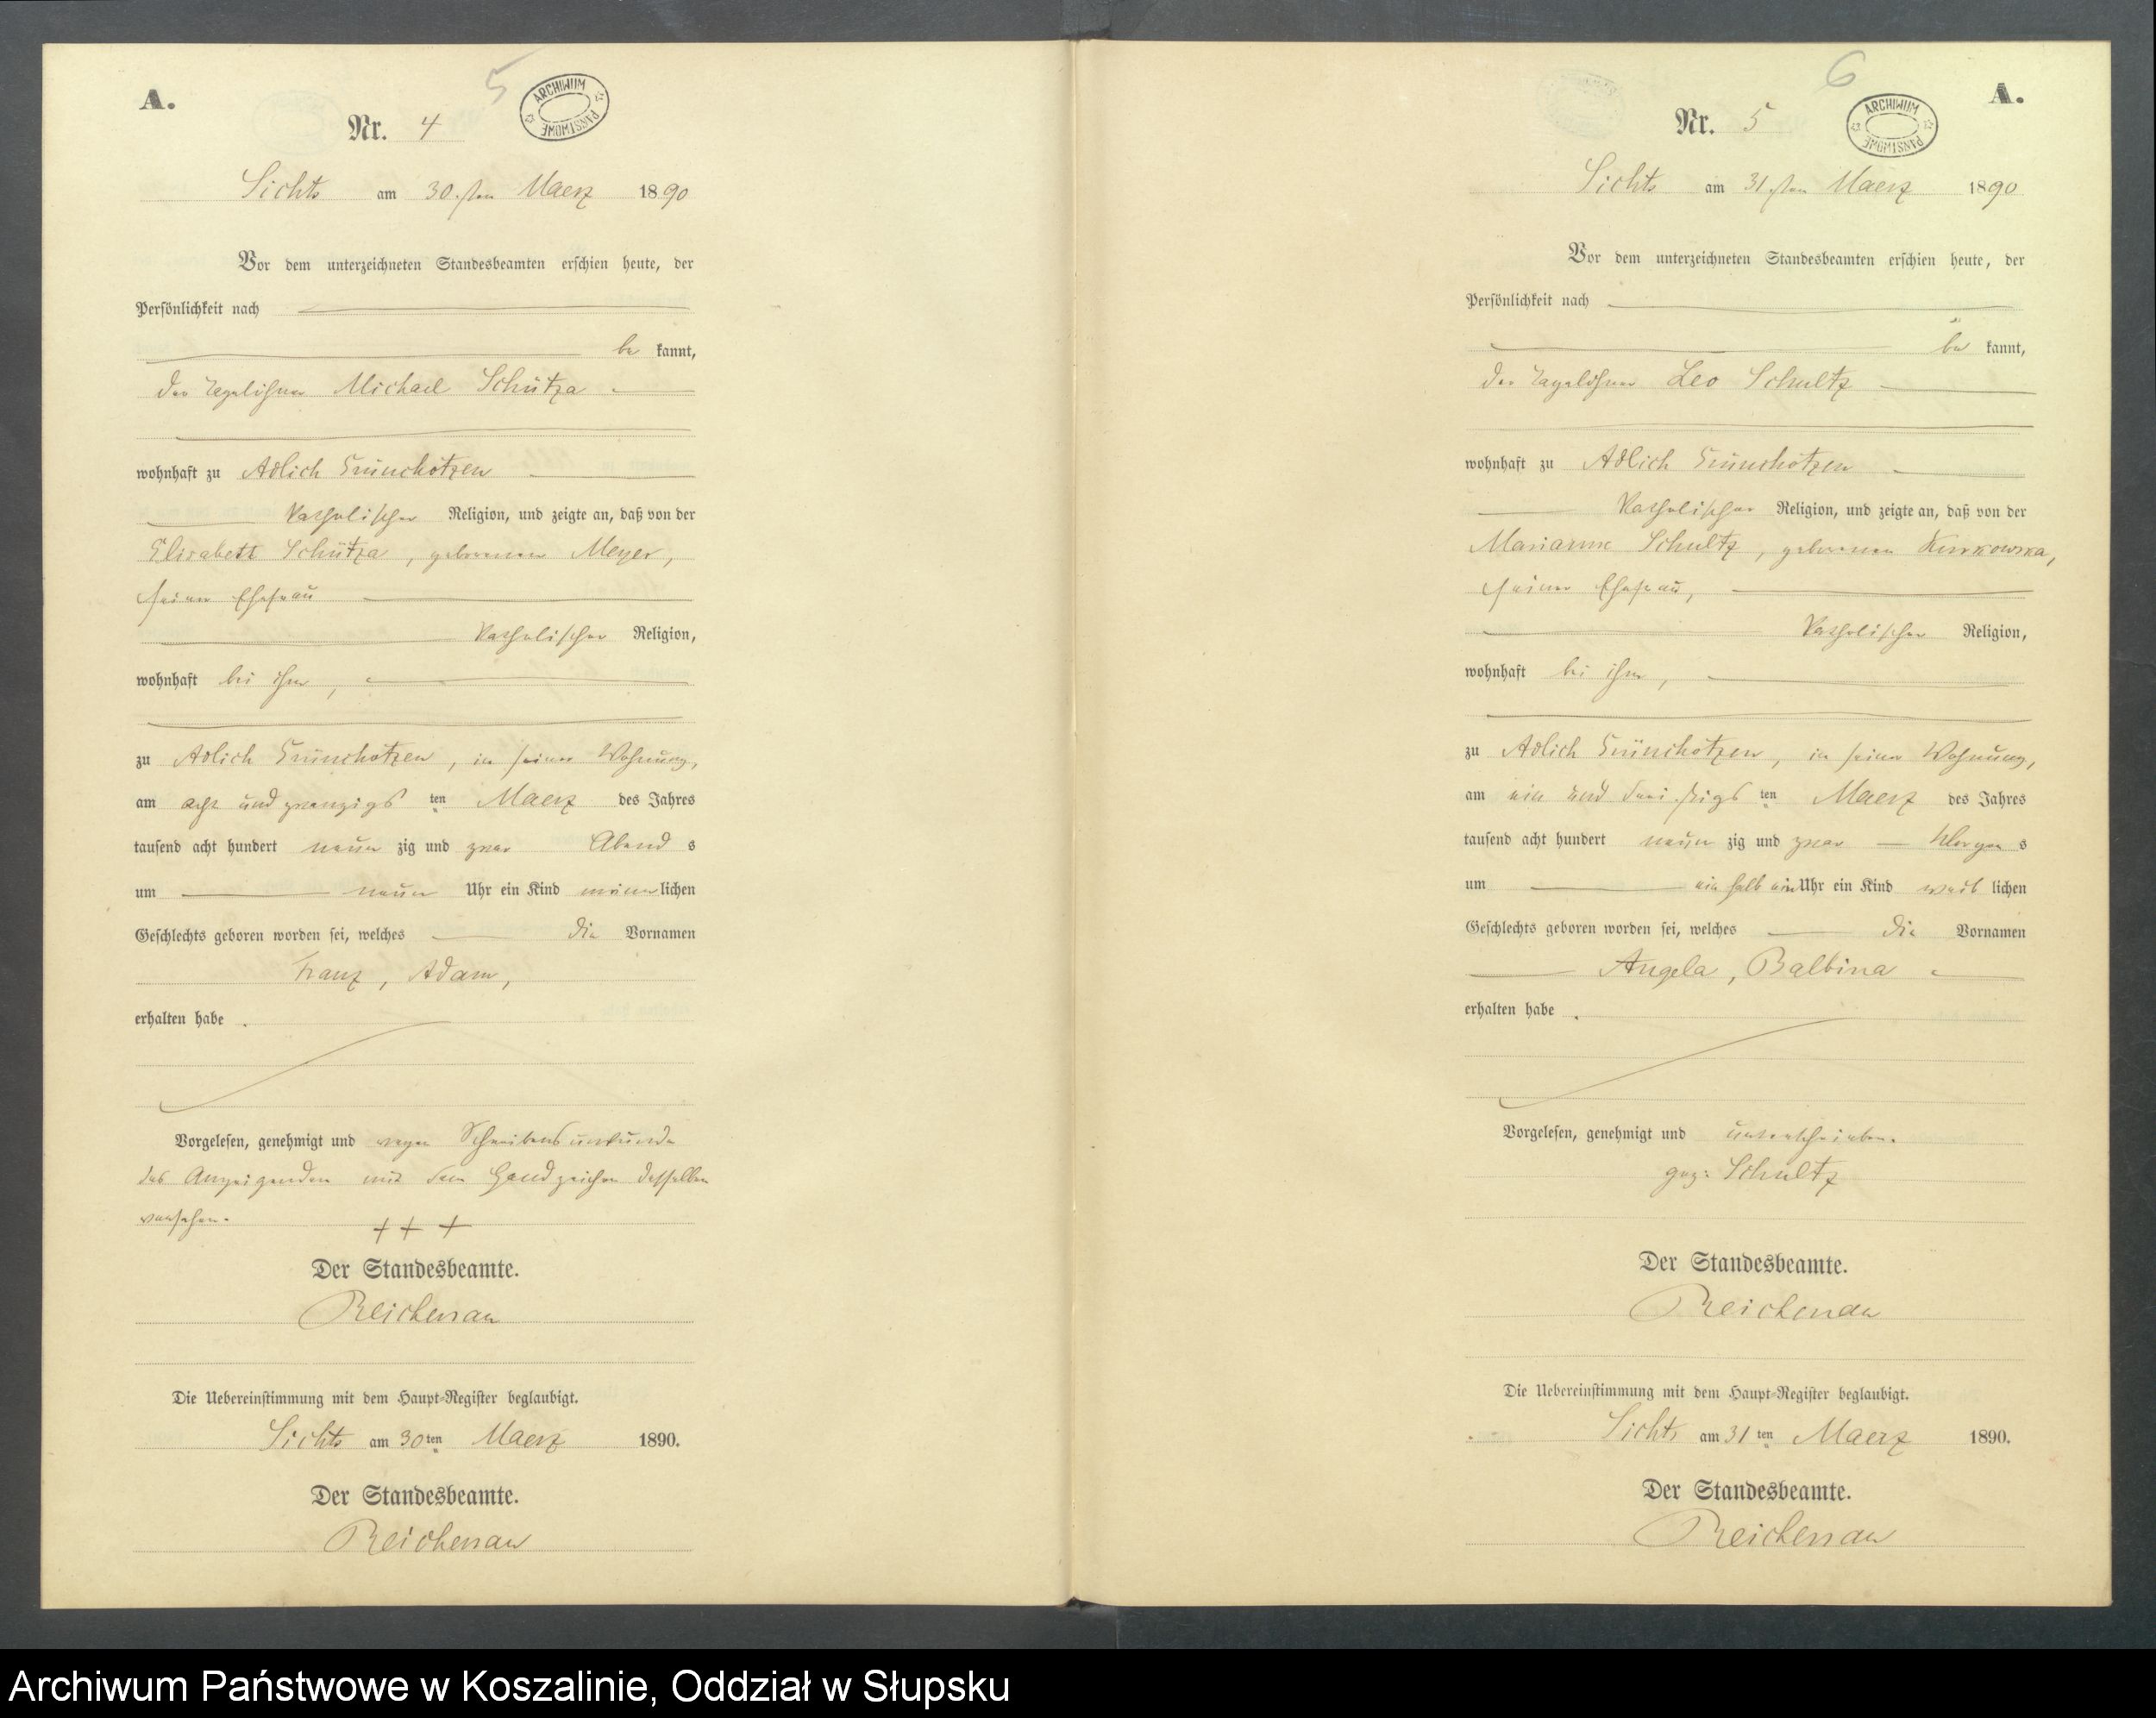 A.
5
ARCHIWUM PAŃSTWOWE
Nr. 4
Lichts am 30.sten Maerz 1890
Vor dem unterzeichneten Standesbeamten erschien heute, der
Persönlichkeit nach
be kannt,
der Tagelöhner Michael Schütza
wohnhaft zu Adlich Grünchotzen
katholischer Religion, und zeigte an, daß von der
Elisabett Schütza, geborenen Meyer,
seiner Ehefrau
katholischer Religion,
wohnhaft bei ihm,
zu Adlich Grünchotzen, in seiner Wohnung,
am acht und zwanzigs ten Maerz des Jahres
tausend acht hundert neun zig und zwar Abend s
um neun Uhr ein Kind männ lichen
Geschlechts geboren worden sei, welches die Vornamen
Franz, Adam,
erhalten habe.
Vorgelesen, genehmigt und wegen Schreibensunkunde
des Anzeigenden mit dem Handzeichen desselben
versehen.
+ + +
Der Standesbeamte.
Reichenau
Die Uebereinstimmung mit dem Haupt-Register beglaubigt.
Lichts am 30 ten Maerz 1890.
Der Standesbeamte.
Reichenau
6
A.
ARCHIWUM PAŃSTWOWE
Nr. 5
Lichts am 31.sten Maerz 1890
Vor dem unterzeichneten Standesbeamten erschien heute, der
Persönlichkeit nach
be kannt,
der Tagelöhner Leo Schultz
wohnhaft zu Adlich Grünchotzen
katholischer Religion, und zeigte an, daß von der
Marianne Schultz, geborenen Kurkowska,
seiner Ehefrau,
katholischer Religion,
wohnhaft bei ihm,
zu Adlich Grünchotzen, in seiner Wohnung,
am ein und dreißigs ten Maerz des Jahres
tausend acht hundert neun zig und zwar Morgen s
um ein halb ein Uhr ein Kind weib lichen
Geschlechts geboren worden sei, welches die Vornamen
Angela, Balbina
erhalten habe.
Vorgelesen, genehmigt und unterschrieben.
gez: Schultz
Der Standesbeamte.
Reichenau
Die Uebereinstimmung mit dem Haupt-Register beglaubigt.
Lichts am 31 ten Maerz 1890.
Der Standesbeamte.
Reichenau
Archiwum Państwowe w Koszalinie, Oddział w Słupsku